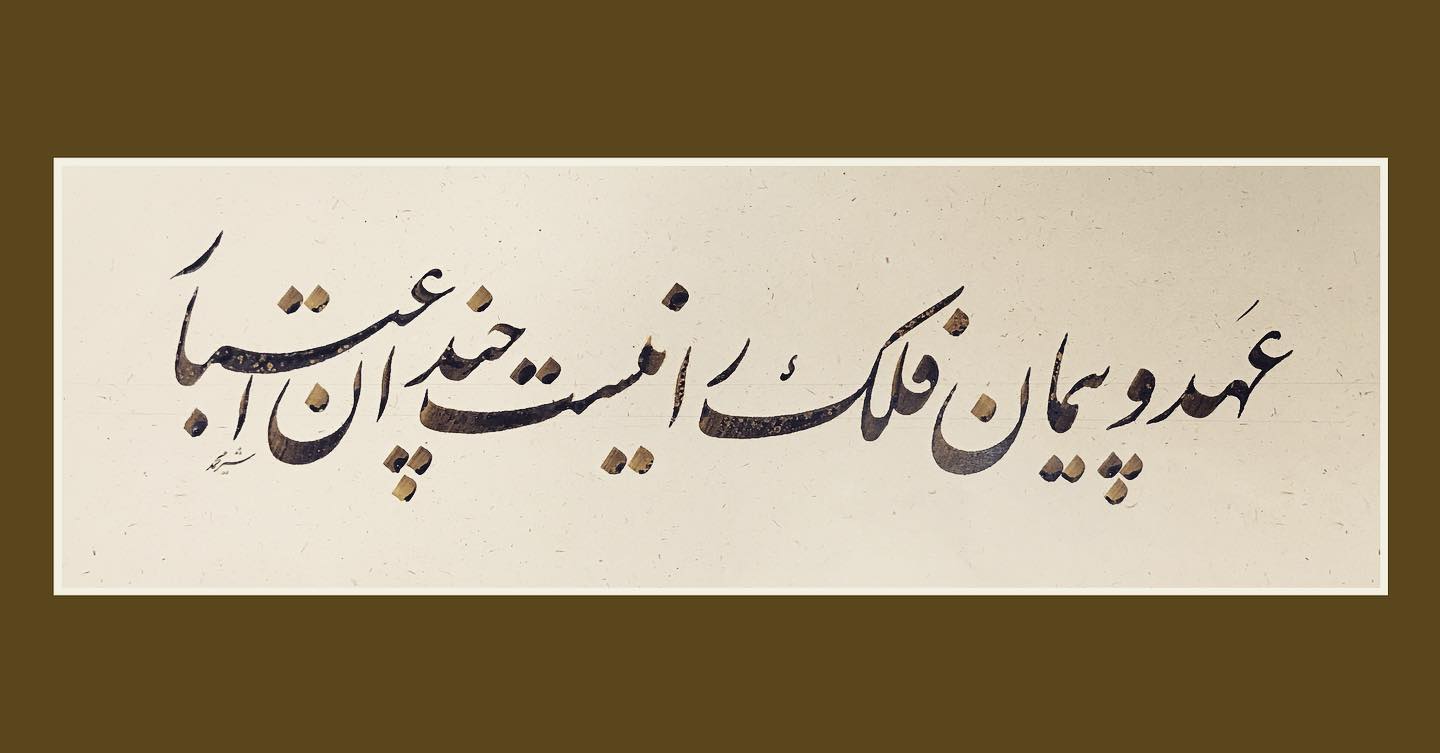 عهد و پیمان فلک را نیست چندان اعتبار